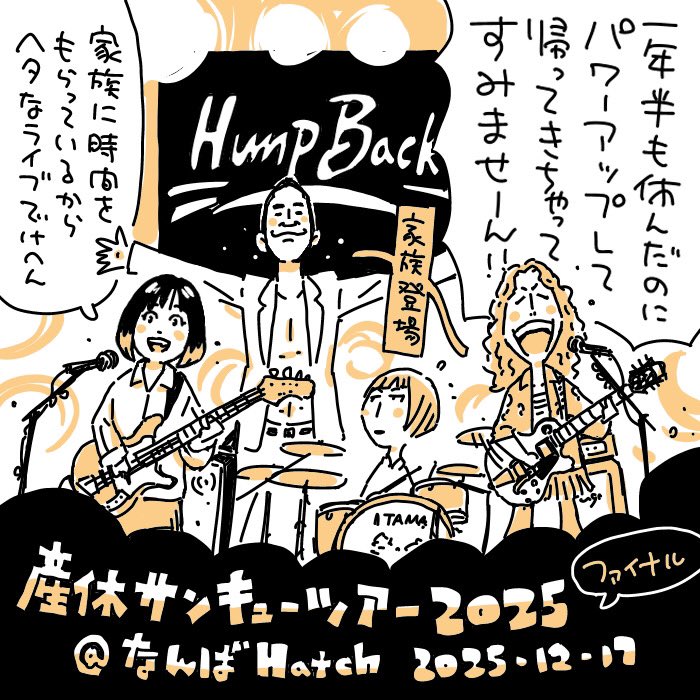 一年半も休んだのに
パワーアップして
帰ってきちゃって
すみませーん!!
家族に時間を
もらっているから
ヘタなライブでけへん
Hump Back
家族登場
ITAMA
産休サンキューツアー2025
ファイナル
@なんばHatch 2025・12・17